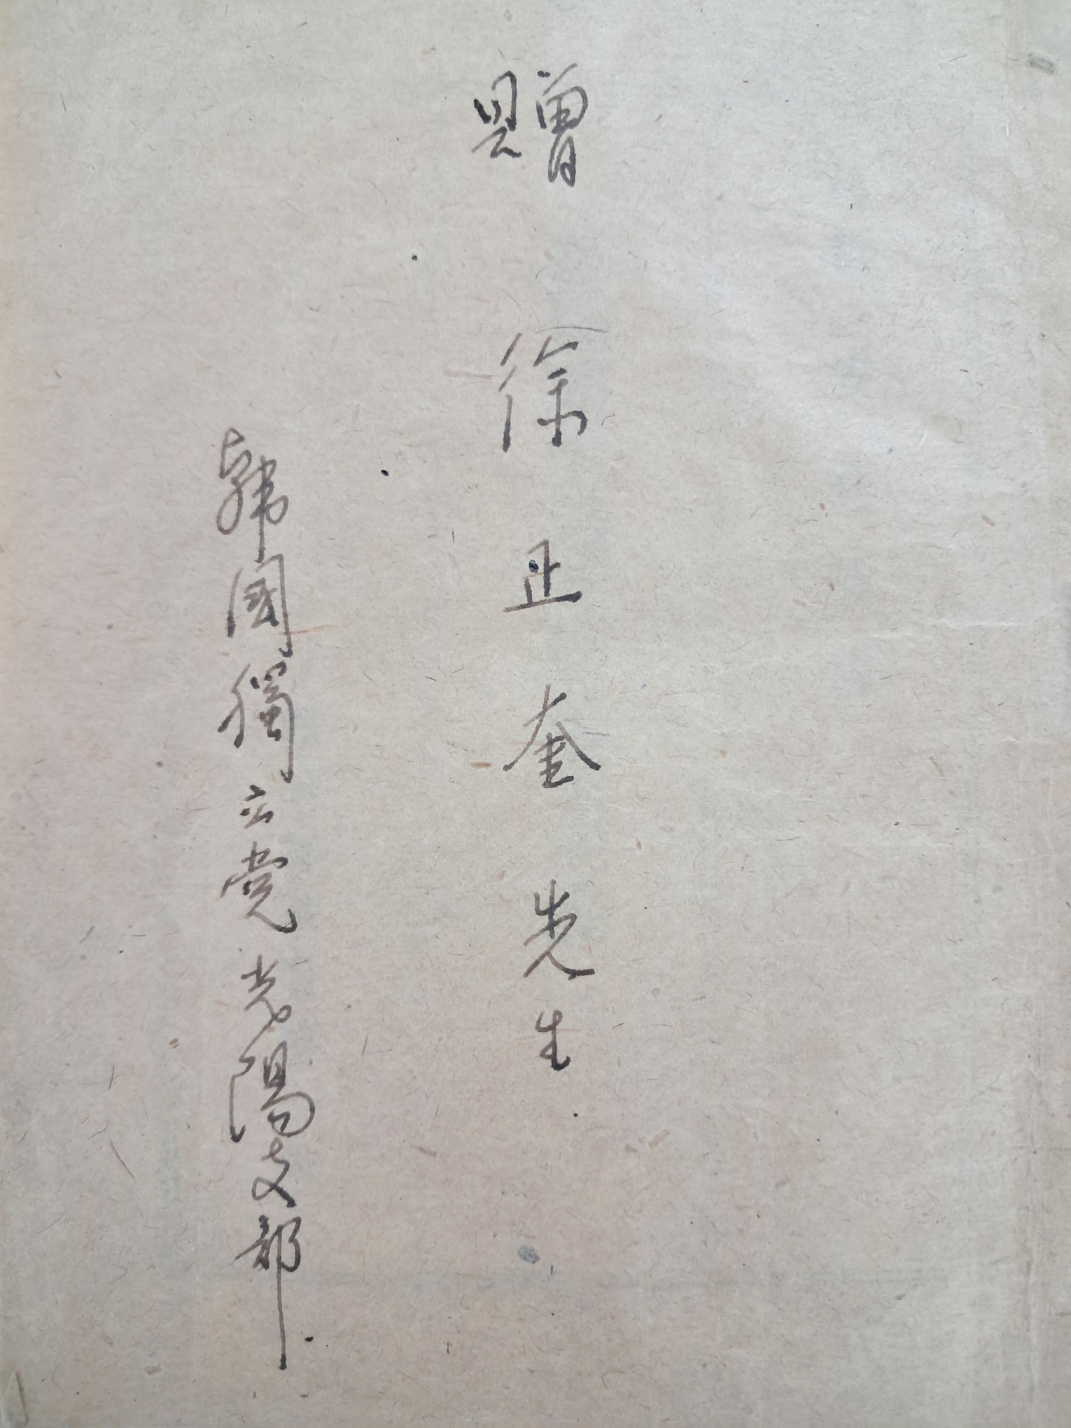 贈 徐正奎先生
韓國獨立党光陽支部